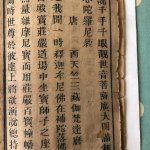 千手千眼觀世音菩薩廣大圓滿
心陀羅尼
唐 西天竺三藏伽梵達摩
我聞一時釋迦牟尼佛在補陀落
寶莊嚴道場中坐寶師子之座
雜摩尼寶而用莊嚴百寶幢幡
時世尊於彼座上將欲演說總持